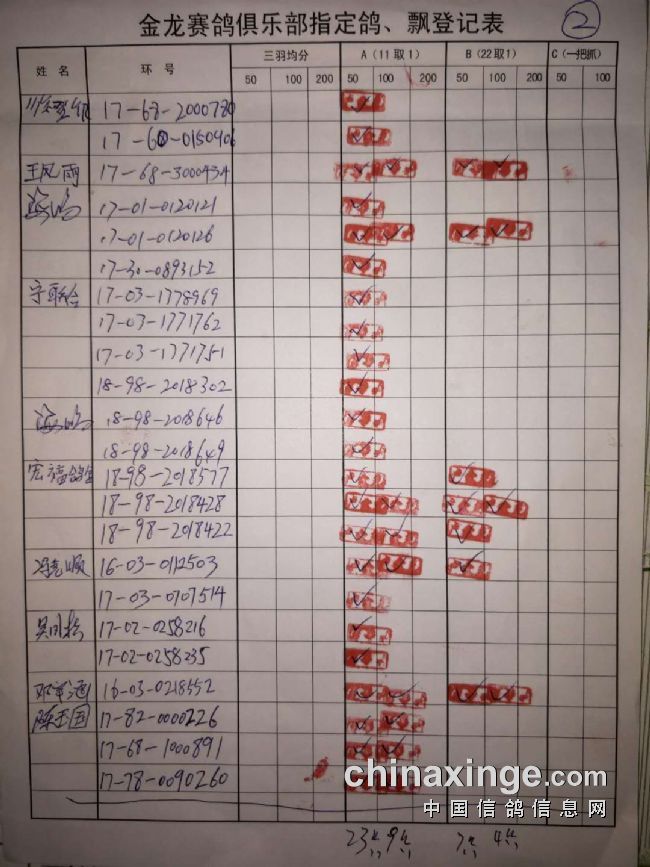 金龙赛鸽俱乐部指定鸽、飘登记表 ②
姓名 环号 三羽均分 A（11取1） B（22取1） C（一把抓）
50 100 200 50 100 200 50 100 200 50 100
17-68-2000780
17-60-0150406
王风雨 17-68-3000434
17-01-0120121
17-01-0120126
17-30-0893152
17-03-1778969
17-03-1771762
17-03-1771751
18-98-2018302
18-98-2018646
18-98-2018649
宏福鸽舍 18-98-2018577
18-98-2018428
18-98-2018422
16-03-0112503
17-03-0707514
17-02-0258216
17-02-0258235
16-03-0218552
陈玉国 17-82-0000226
17-68-1000891
17-78-0090260
chinaxinge.com
中国信鸽信息网
23 9 7 4